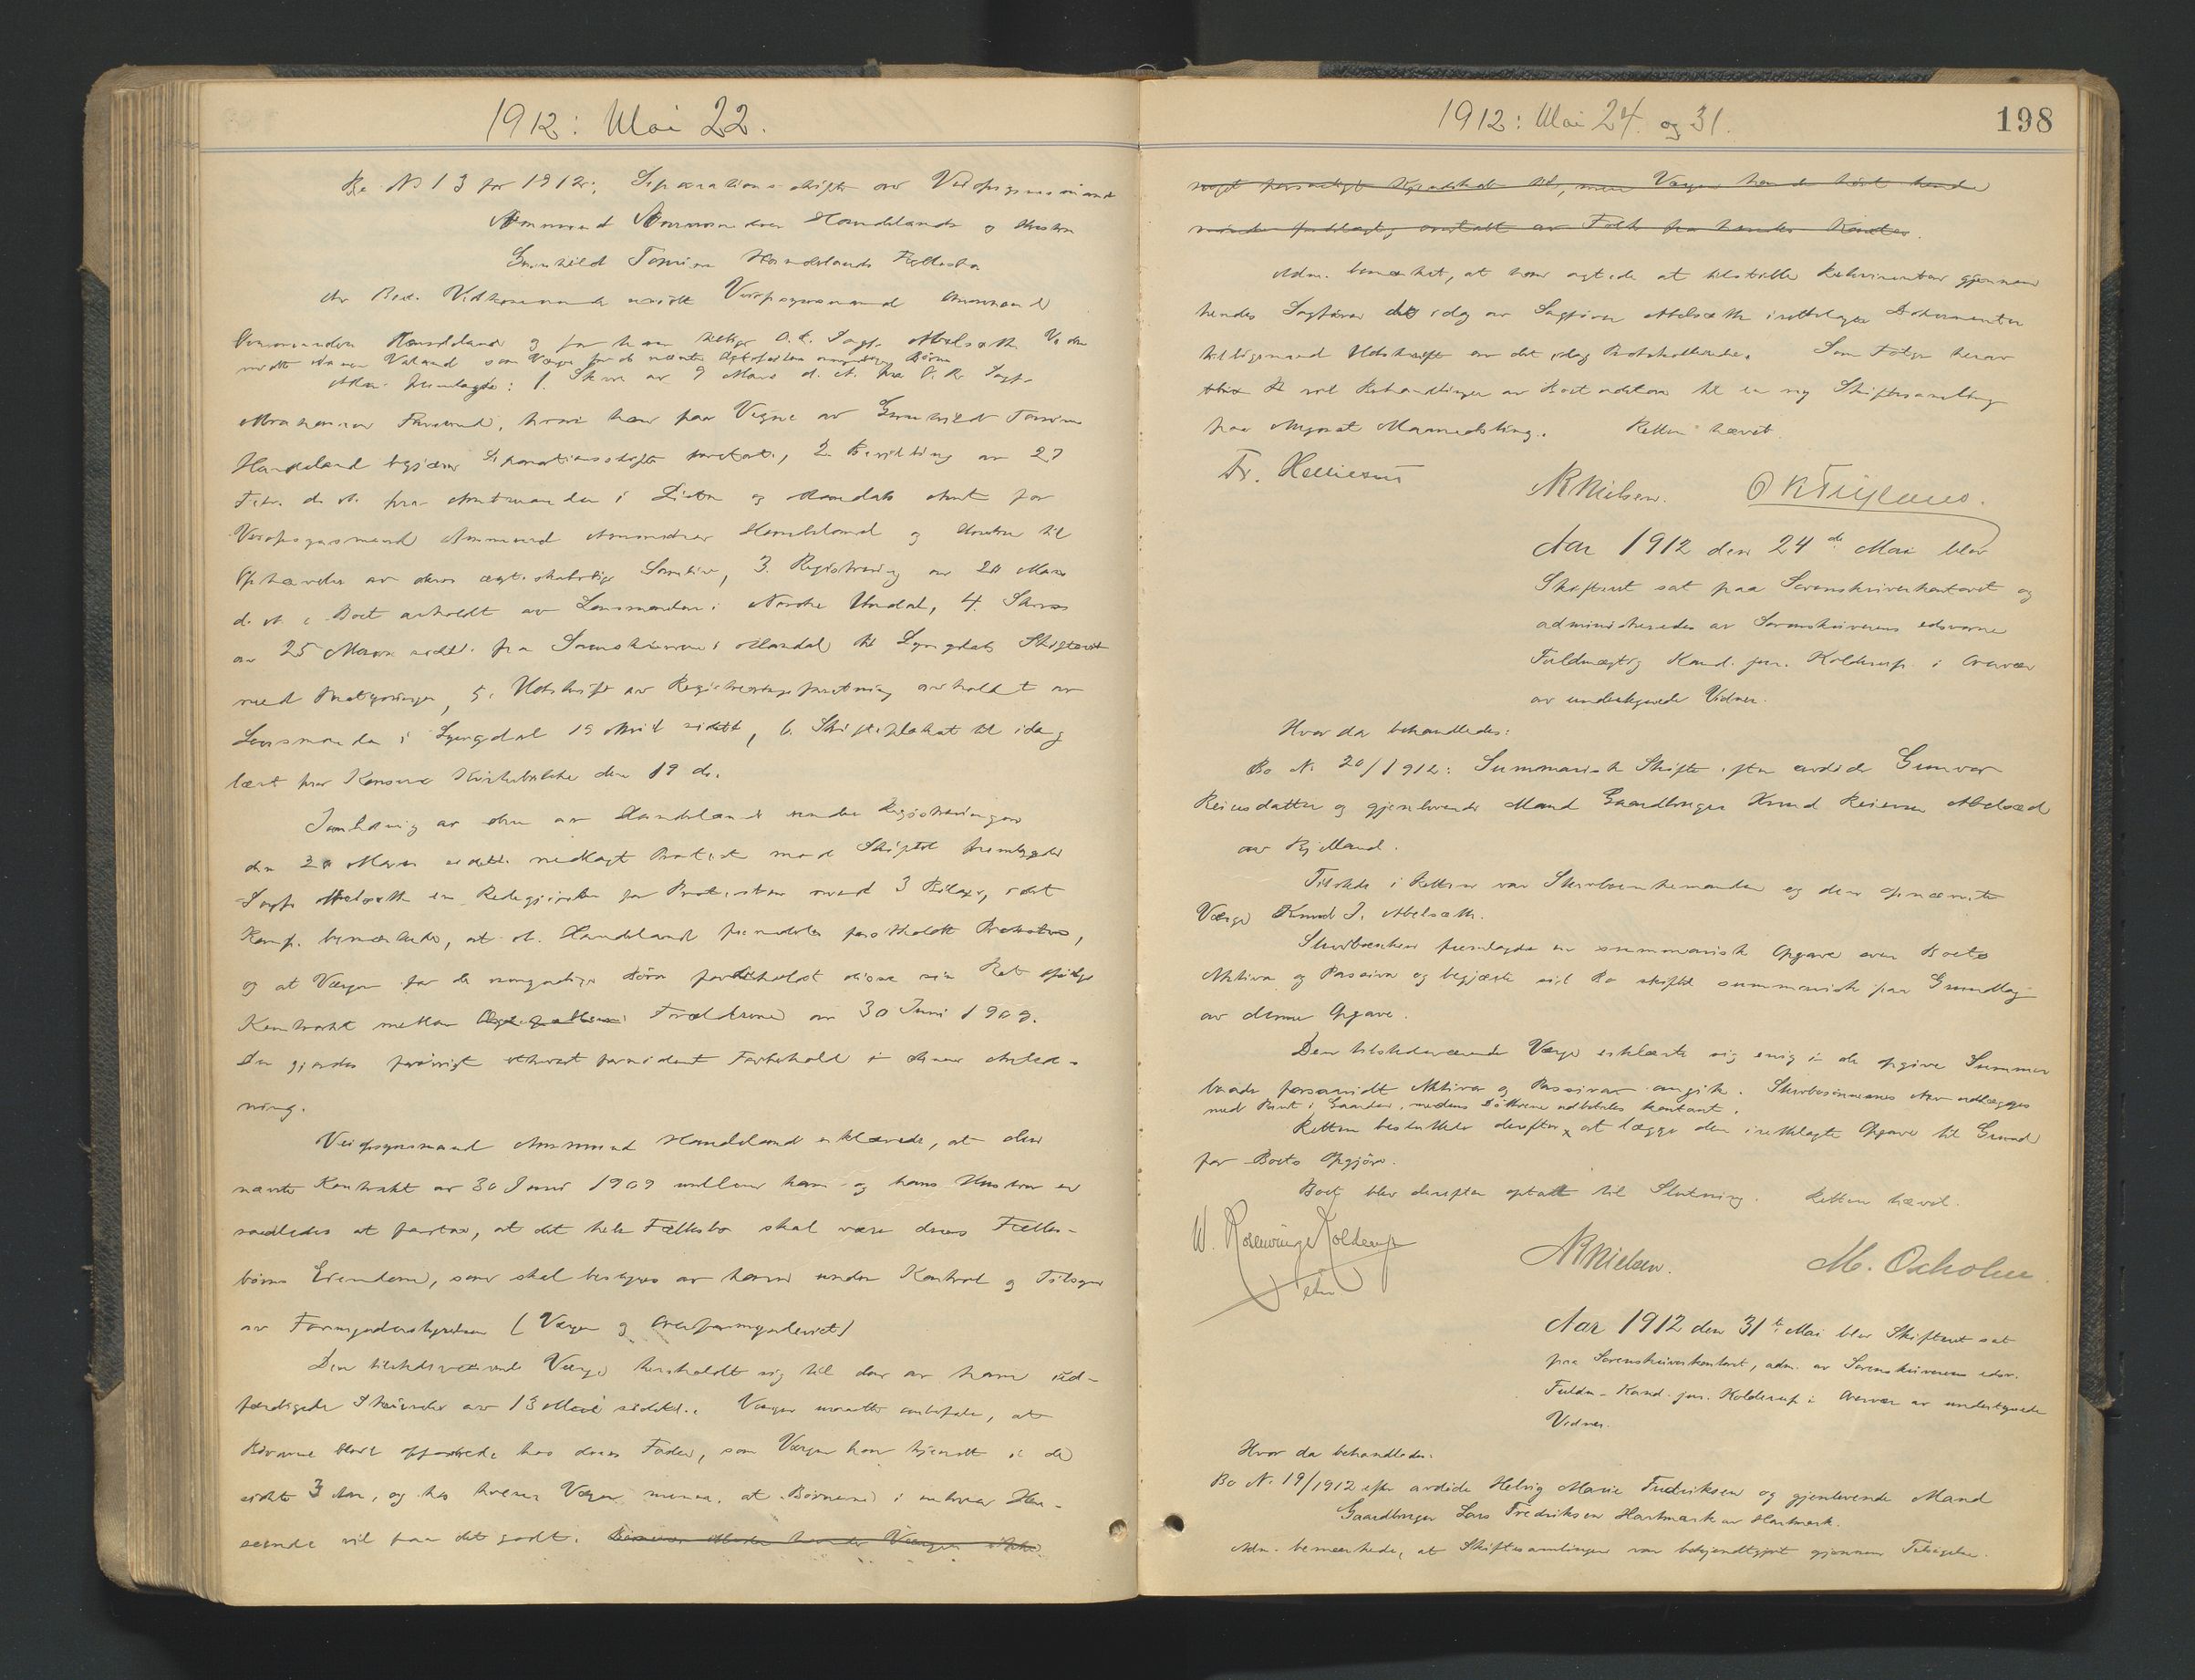 1912: Mai 22.
Bo N. 13 for 1912: Separationsskifte over Veiopsynsmand
Ammund Ammundsen Haandeland og Hustru
Gunhild Tomine Haandelands Fællesbo
Veiopsynsmand Ammund
og for ham Sagf. Abelsæth
mødte som Værge for de nævnte Børn
Adm. fremlagde: 1. Skriv av 9 Mars d. A. fra O.R. Sagf.
hvori han paa Vegne av Gunhild Tomine
Haandeland begjærer Separationsskifte foretat, 2. Bevilling av 27
Febr. d. A. fra Amtmanden i Lister og Mandals Amt for
Veiopsynsmand Ammund Ammundsen Haandeland og Hustru til
Ophævelse av deres egteskabelige Samliv, 3. Registrering av 20 Mars
d. A. i Boet avholdt av Lensmanden i Nordre Undal, 4. Skriv
av 25 Mars sidstl. fra Sorenskriveren i Mandal til Lyngdals Skifteret
med Paategninger, 5. Utskrift av Registreringsforretning avholdt av
Lensmanden i Lyngdal 19 April sidstl., 6. Skifteplakat til idag
læst fra Konsmo Kirkebakke den 19 ds.
I Anledning av den av Haandeland under Registreringen
den 20 Mars sidstl. nedlagt Protest mod Skiftet fremlagde
Sagf. Abelsæth en Redegjørelse for Protesten med 3 Bilage, idet
Komp. bemærkede, at A. Haandeland fremdeles fastholdt Protesten,
og at Værgen for de umyndige Børn forbeholdt disse sin Ret ifølge
Kontrakt mellem Forældrene av 30 Juni 1909.
Der gjordes forøvrigt ethvert fornødent Forbehold i denne Anled-
ning.
Veiopsynsmand Ammund Haandeland erklærede, at den
nævnte Kontrakt av 30 Juni 1909 mellem ham og hans Hustru er
saaledes at forstaa, at det hele Fællesbo skal være deres Fælles-
børns Eiendom, som skal bestyres av ham under Kontrol og Tilsyn
av Formynderstyrelsen (Værgen og Overformynderiet)
Den tilstedeværende Værge henholdt sig til den av ham ud-
færdigede Skrivelse av 13 Mai sidstl. Værgen maatte anbefale, at
Børnene blev opfostrede hos deres Fader, som Værgen har kjendt i de
sidste 3 Aar, og hos hvem Værgen mener, at Børnene i enhver Hen-
seende vil faa det godt. Værgen ikke
1912: Mai 24. og 31.
198
noget personligt Kjendskab til, men Værgen har da hørt hende
av Folk fra hendes Kanter.
Adm. bemærket, at han agtede at tilstille Rekvirenten gjennem
hendes Sagfører de idag av Sagfører Abelsæth irettelagte Dokumenter
tilligemed Utskrift av det idag Protokollerede. Som Følge herav
vil Behandlingen av Boet utstaa til en ny Skiftesamling
paa August Maanedsting. Retten hævet.
Fr. Helliesen
NB Nielsen.
Aar 1912 den 24de Mai blev
Skifteret sat paa Sorenskriverkontoret og
administreredes av Sorenskriverens edsvorne
Fuldmægtig Kand. jur. Kolderup i Overvær
av undertegnede Vidner.
Hvor da behandledes:
Bo N. 20/1912: Summarisk Skifte efter avdøde Gunvor
Reiersdatter og gjenlevende Mand Gaardbruger Knud Reiersen Abelsæd
av Bjelland.
Tilstede i Retten var Skyldneren og den opnævnte
Værge Knud J. Abelsæth.
fremlagde en summarisk Opgave over Boets
Aktiva og Passiva og begjærte sit Bo skiftet summarisk paa Grundlag
av denne Opgave.
Den tilstedeværende Værge erklærte sig enig i de opgivne Summer
baade forsaavidt Aktiva og Passiva angik. Arv udlægges
med Part i Gaarden, medens Døttrene udbetales kontant.
Retten besluttede derefter at lægge den irettelagte Opgave til Grund
for Boets Opgjør.
Boet blev derefter optatt til Slutning. Retten hævet.
W. Rosenvinge Kolderup
edsv.
NB Nielsen.
M. Oxholm.
Aar 1912 den 31te Mai blev Skifteret sat
paa Sorenskriverkontoret, adm. av Sorenskriverens edsv.
Fuldm. Kand. jur. Kolderup i Overvær av undertegnede
Vidner.
Hvor da behandledes:
Bo N. 19/1912 efter avdøde Helvig Marie Fredriksen og gjenlevende Mand
Gaardbruger Lars Fredriksen Hartmark av Hartmark.
Adm. bemærkede, at Skiftesamlingen var bekjendtgjort gjennem Tilsigelse.